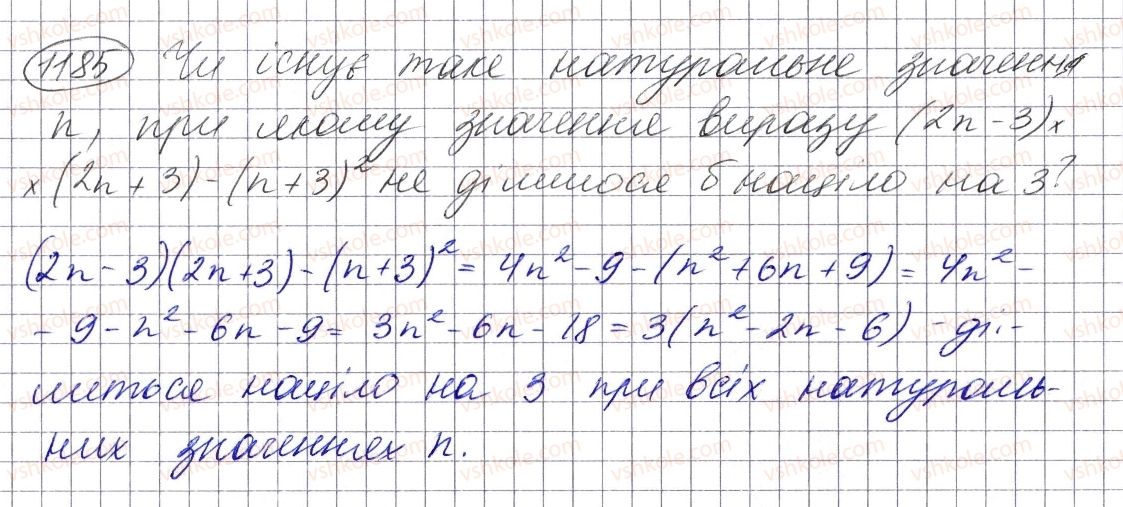 1185 Чи існує таке натуральне значення
n, при якому значення виразу (2n - 3)×
× (2n + 3) - (n + 3)² не ділилося б націло на 3?
(2n - 3)(2n + 3) - (n + 3)² = 4n² - 9 - (n² + 6n + 9) = 4n² -
- 9 - n² - 6n - 9 = 3n² - 6n - 18 = 3(n² - 2n - 6) - ді-
литься націло на 3 при всіх натураль-
них значеннях n.